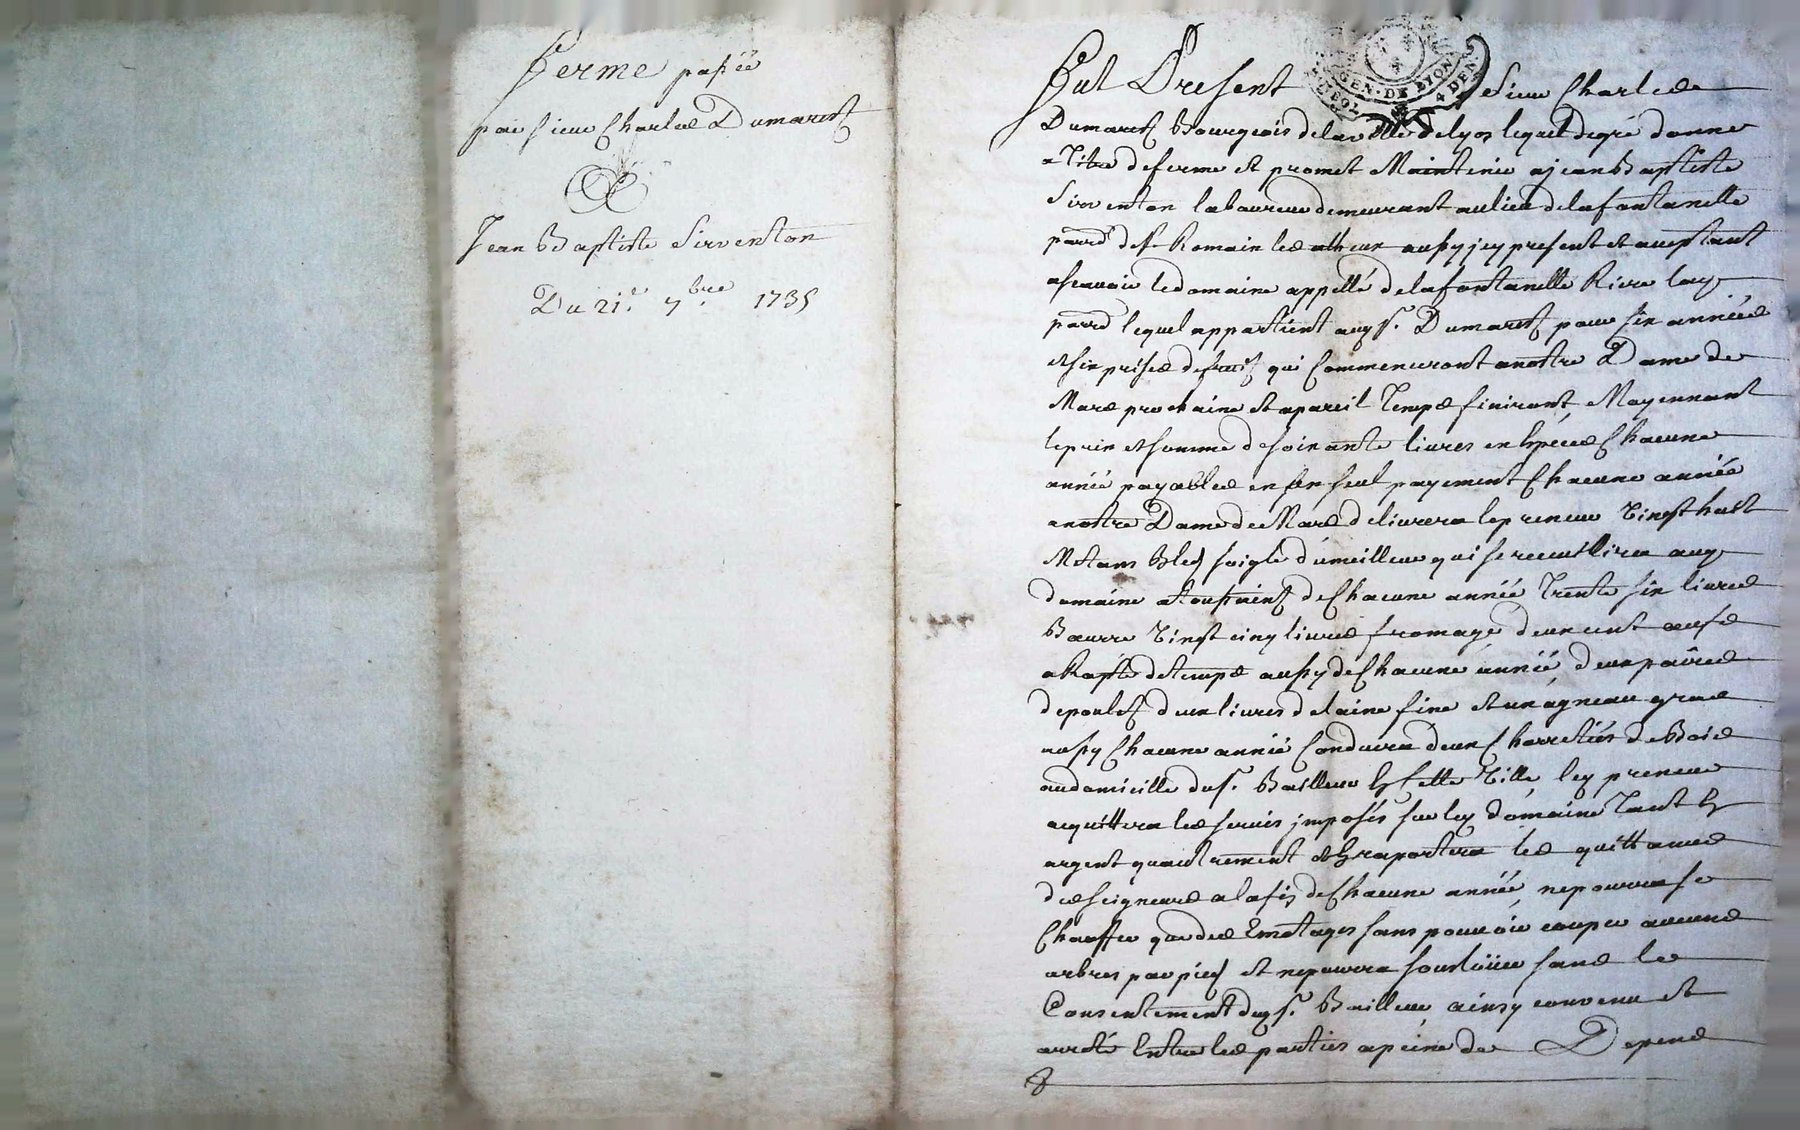 Ferme passée
par sieur Charles Dumarest
A
Jean Baptiste Sirventon
Du 21e. 7bre. 1735
GEN. DE LYON
4 DEN.
Fut Present Sieur Charles
Dumarest Bourgeois de la ville de lyon lequel de gré donne
a Titre de ferme et promet Maintenir a jean Baptiste
Sirventon laboureur demeurant au lieu de la fontanelle
parr. de St Romain les aussy icy present et aceptant
ascavoir le domaine appellé de la fontanelle Riere lad.
parr. lequel appartient aud. sr. Dumarest pour six années
et six prises de fruits qui Commenceront a nostre Dame de
Mars prochaine et a pareil Temps finiront Moyennant
le prix et somme de soixante livres en Espèces Chacune
année payables en un seul payement Chacune année
a nostre Dame de Mars delivrera le preneur Vingt huit
Metans Bled soigle du meilleur qui se recueillira aud.
domaine a Toussaint de Chacune année Trente six livres
Beurre Vingt cinq livres fromage deux cent œufs
a Raste de temps aussy de Chacune année, deux paires
de poulets deux livres de laine fine et un agneau gras
aussy Chacune année Conduira deux Charretées de Bois
au domicille du sr. Bailleur En cette Ville, led. preneur
acquittera les servis imposés sur led. domaine Tant En
argent qu'autrement et En raportera les quittances
des seigneurs a la fin de Chacune année, ne pourra se
Chauffer que des Emotages sans pouvoir couper aucuns
arbres par pied et ne pourra souloüer sans le
Consentement dud. sr. Bailleur, ainsy convenu et
arreté Entre les parties a peine de Depens